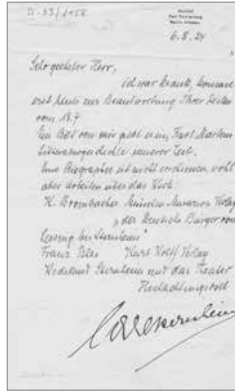 D. 33/1058
6.8.24
Sehr geehrter Herr,
ich war krank, komme
erst heute zur Beantwortung Ihrer Zeilen
vom 18.7
Ein Bild von mir giebt es in Kurt Martens
Litteraturgeschichte unserer Zeit.
Eine Biographie ist nicht erschienen, wohl
aber Arbeiten über das Werk.
K. Brombacher München Verlag
"der Deutsche Bürger von
Lessing bis Sternheim"
Franz Blei Kurt Wolff Verlag
Sternheim und das Theater
Hochachtungsvoll
Carl Sternheim